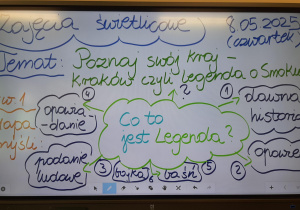 Zajęcia świetlicowe
8 05 2025
(czwartek)
Temat: Poznaj swój kraj -
Kraków czyli legenda o Smoku
?
④
①
opowia-
danie
dawna
historia
Co to
jest Legenda?
podanie
ludowe
③
bajka
baśń
⑤
②